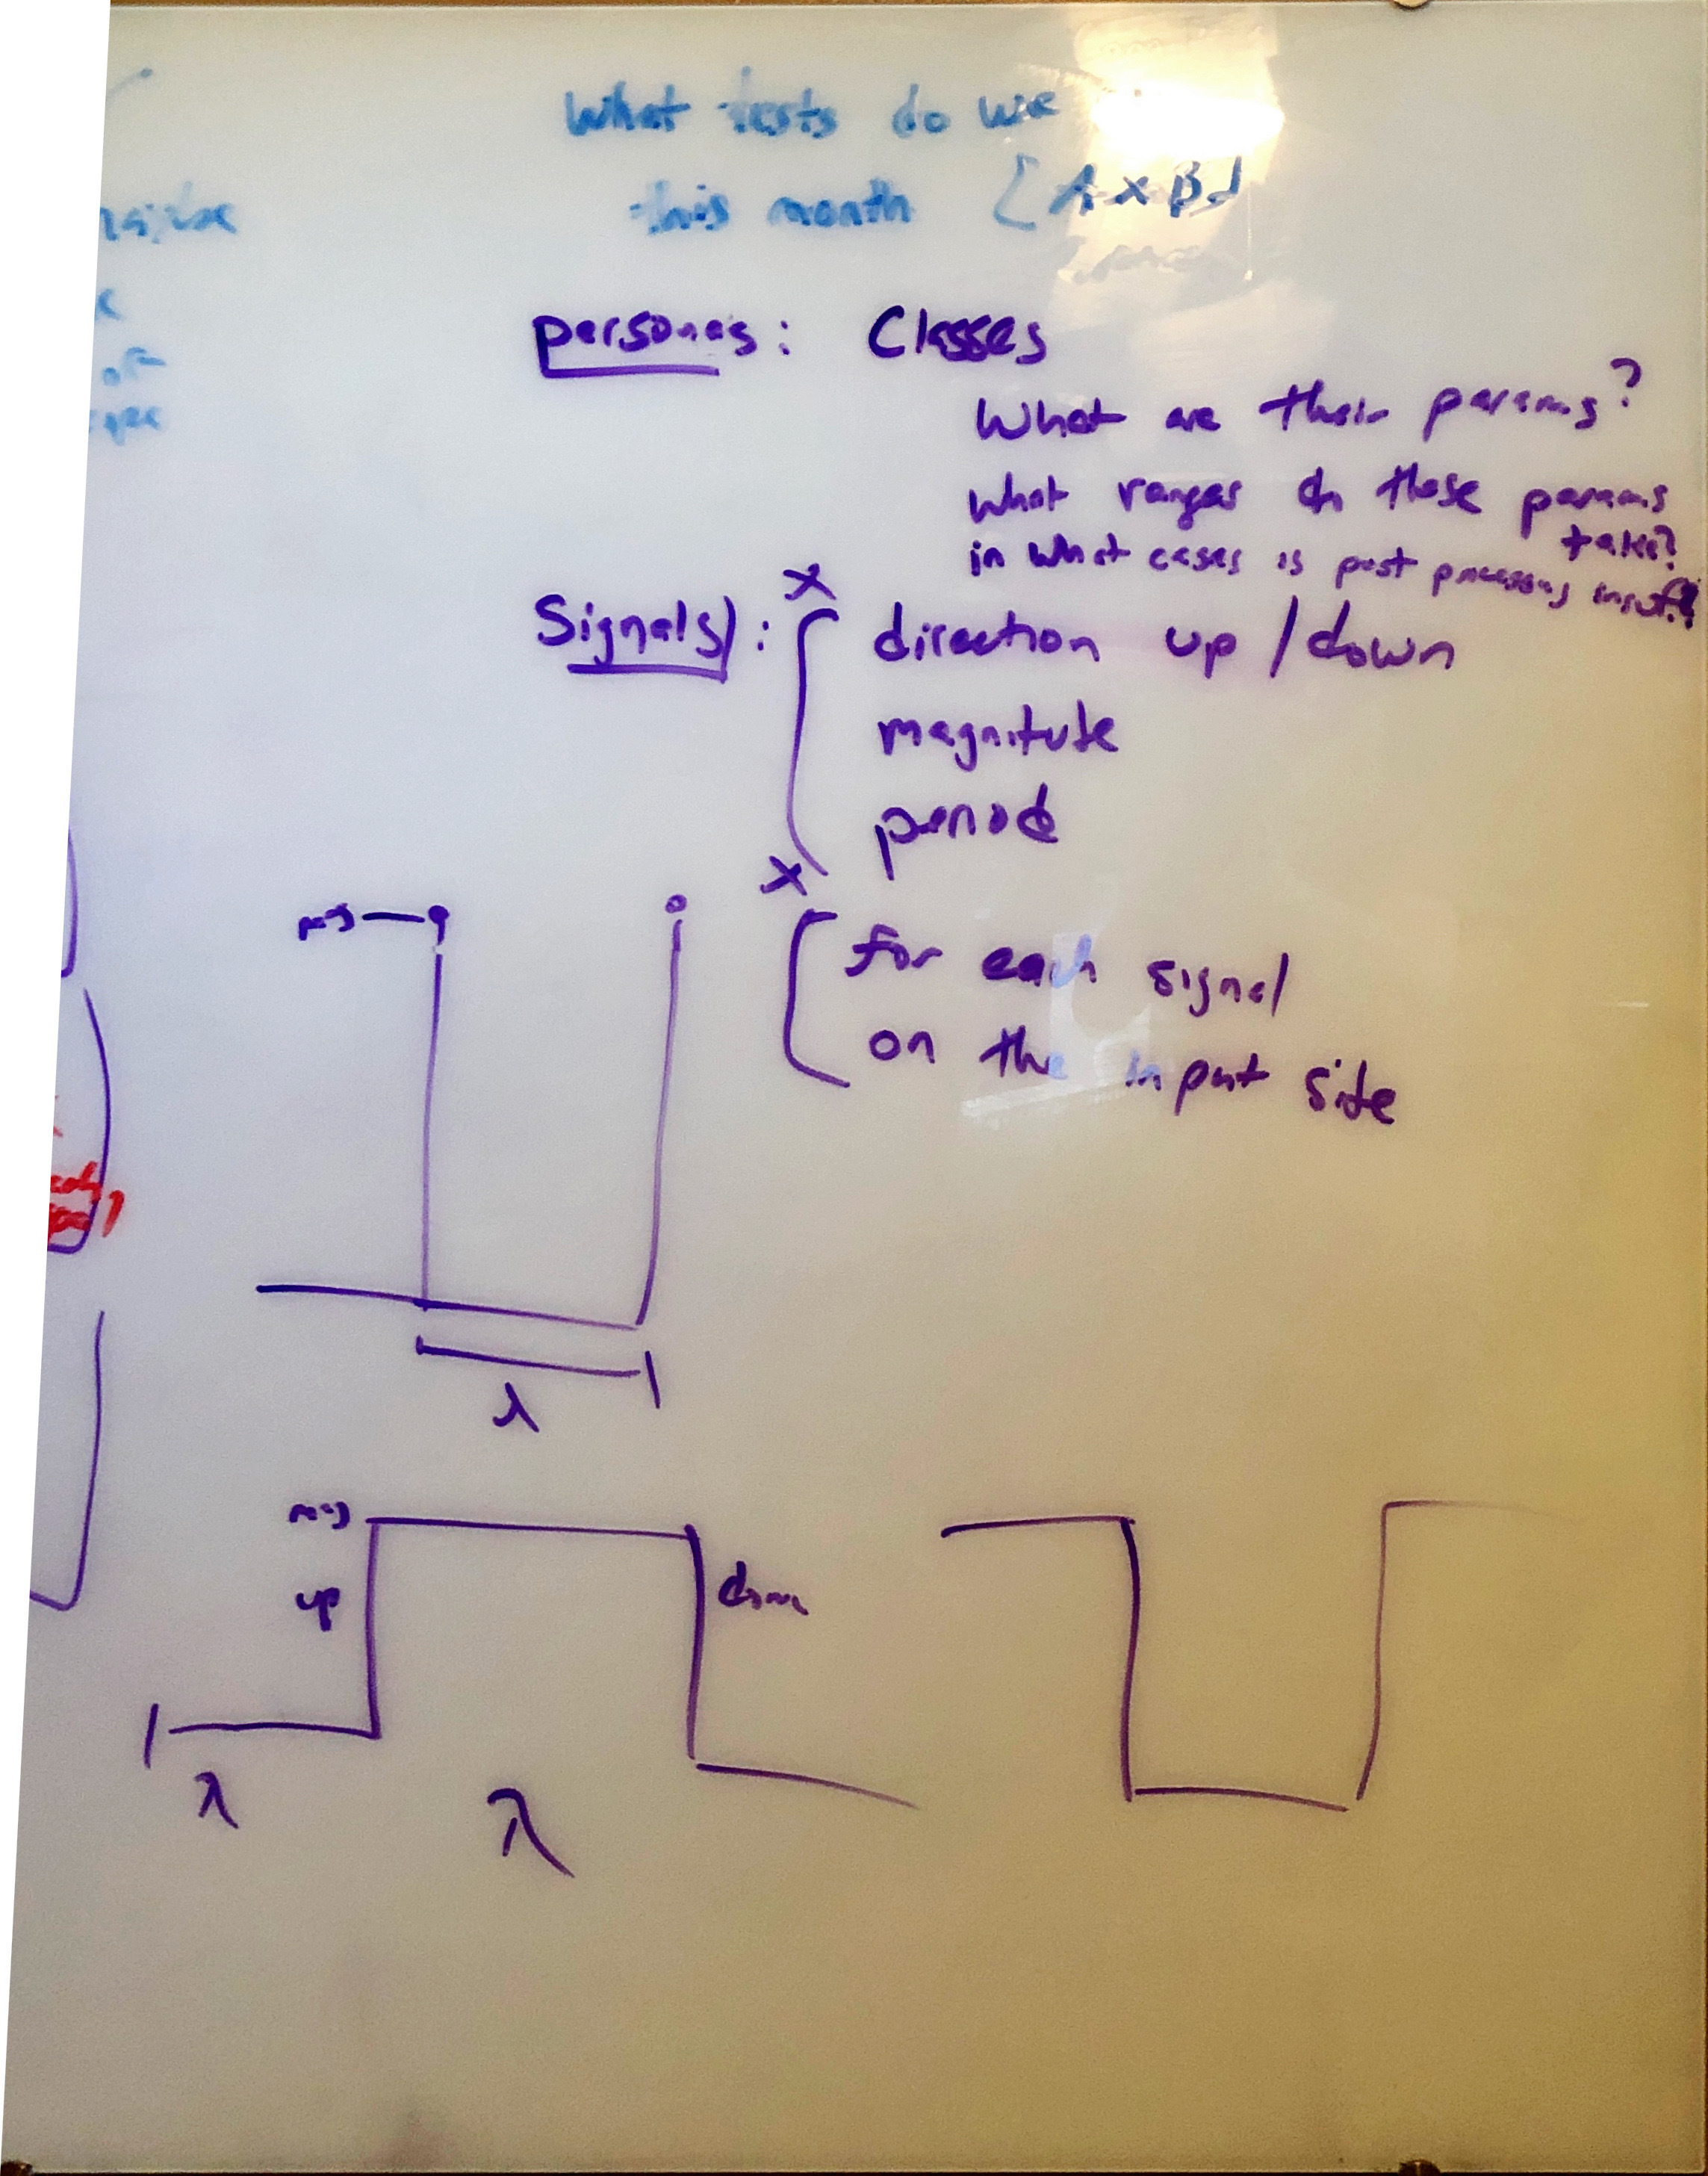 What tests do we
this month [A x B]
personas: Classes
What are their params?
What ranges do these params
take?
in what cases is post processing insuff?
x
Signals): direction up / down
magnitute
period
x
for each signal
on the input side
mag
λ
mag
up
down
λ
λ